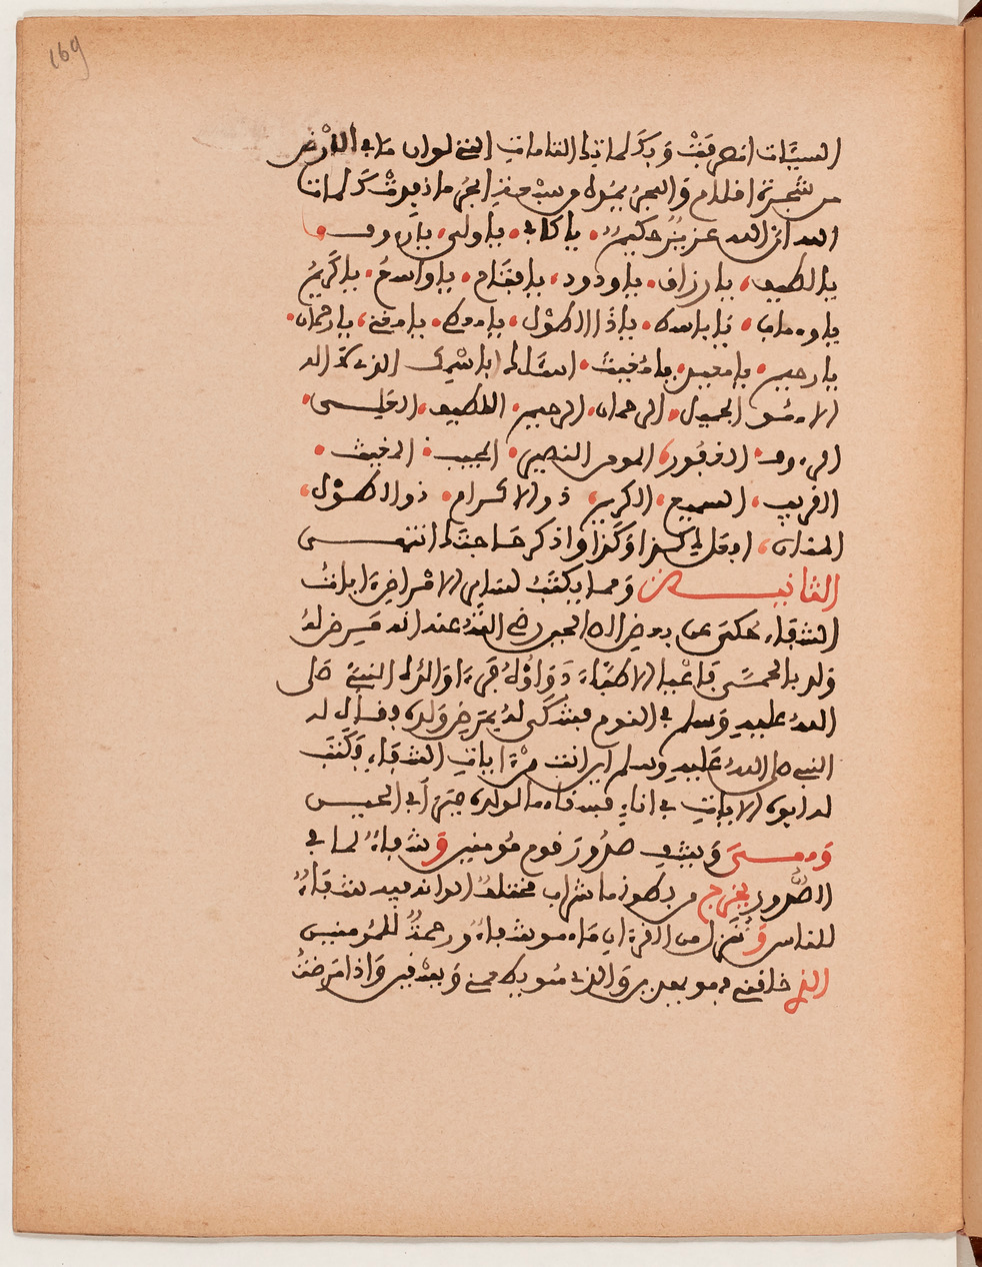 169
السيئات انصرفت وبكلماتك التامات التي لو ان ما في الارض
من شجرة اقلام والبحر يمده من بعده سبعة ابحر ما نفدت كلمات
الله ان الله عزيز حكيم يا كافي يا ولي يا رءوف
يا لطيف يا رزاق يا ودود يا فتاح يا واسع يا كريم
يا وهاب يا باسط يا ذا الطول يا معطي يا مغني يا رحمان
يا رحيم يا معين يا مغيث اسئلك باسمك الذي لا اله
الا هو الجميل الرحمان الرحيم اللطيف الحليم
الرءوف الغفور المومن النصير المجيب المغيث
القريب السميع الكريم ذو الاكرام ذو الطول
المنان افعل لي كذا وكذا واذكر حاجتك انتهى
الثانية ومما يكتب لسائر الامراض ايات
الشفاء حكي عن بعض الصالحين رضي الله عنه انه مرض له
ولد بالحمى فاعيا الاطباء دواؤه فرءا والده النبي صلى
الله عليه وسلم في النوم فشكى له بمرض ولده فقال له
النبي صلى الله عليه وسلم اين انت من ايات الشفاء فكتب
له ابوه الايات في اناء فسقاه ماله لولده فبرئ في الحين
وهي ويشف صدور قوم مومنين وشفاء لما في
الصدور يخرج من بطونها شراب مختلف الوانه فيه شفاء
للناس وننزل من القرءان ما هو شفاء ورحمة للمومنين
الذي خلقني فهو يهدين والذي هو يطعمني ويسقين واذا مرضت